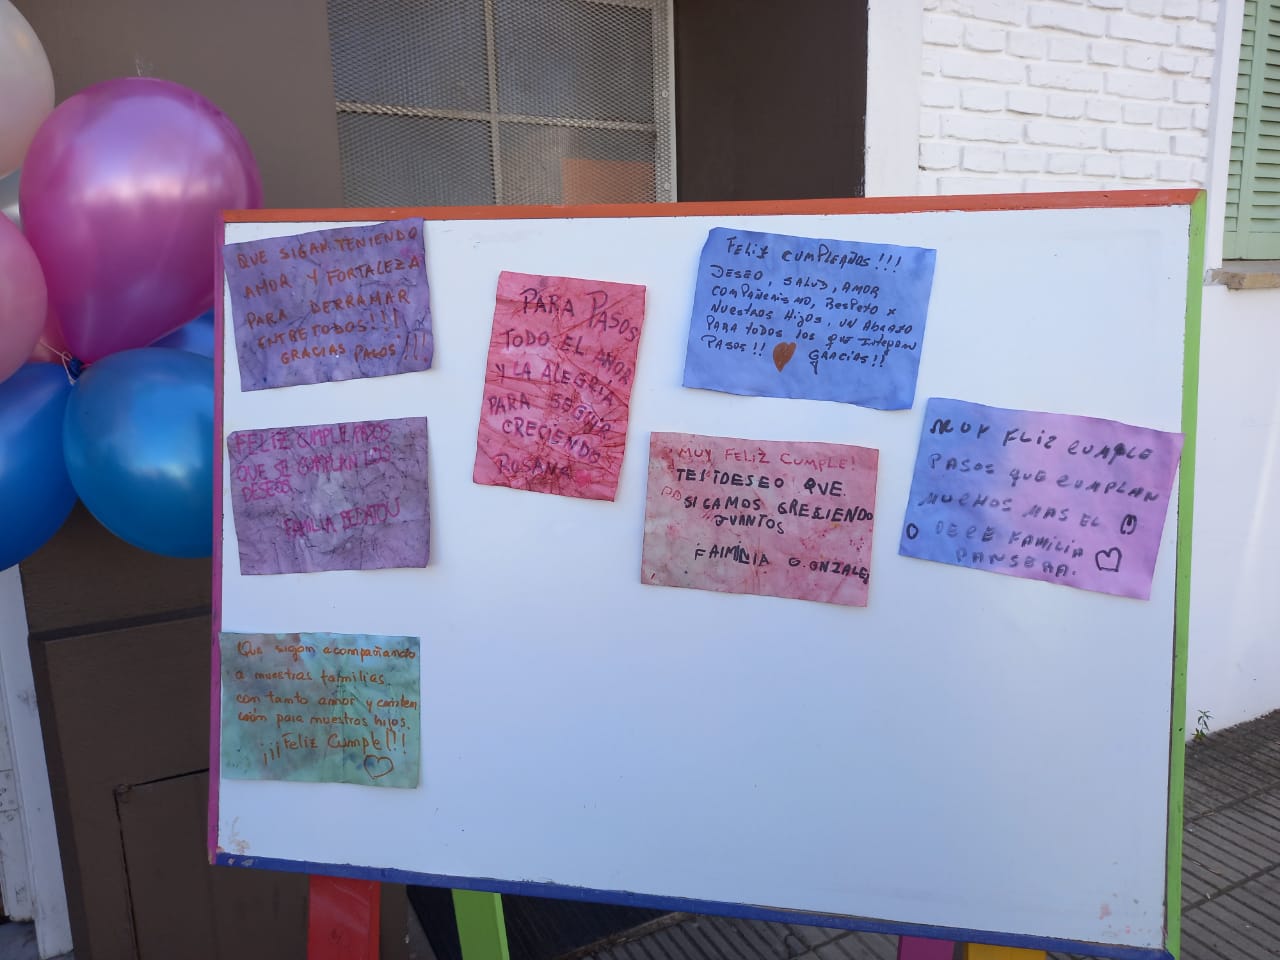 QUE SIGAN TENIENDO
AMOR Y FORTALEZA
PARA DERRAMAR
ENTRE TODOS!!!
GRACIAS PASOS!!!
FELIZ CUMPLE PASOS
QUE SE CUMPLAN LOS
DESEOS
FAMILIA
Que sigan acompañando
a nuestras familias
con tanto amor y conten
ción para nuestros hijos.
¡¡¡Feliz Cumple!!!
PARA PASOS
TODO EL AMOR
Y LA ALEGRÍA
PARA SEGUIR
CRECIENDO
ROSANA
FELIZ CUMPLEAÑOS!!!
DESEO, SALUD, AMOR
COMPAÑERISMO, RESPETO X
NUESTROS HIJOS, UN ABRAZO
PARA TODOS LOS QUE INTEGRAN
PASOS!! GRACIAS!!
MUY FELIZ CUMPLE!
DESEO QUE
SIGAMOS CRECIENDO
JUNTOS
FAIMILIA GONZALEZ
MUY FLIZ CUMPLE
PASOS QUE CUMPLAN
MUCHOS MAS EL
FAMILIA
PANSERA.